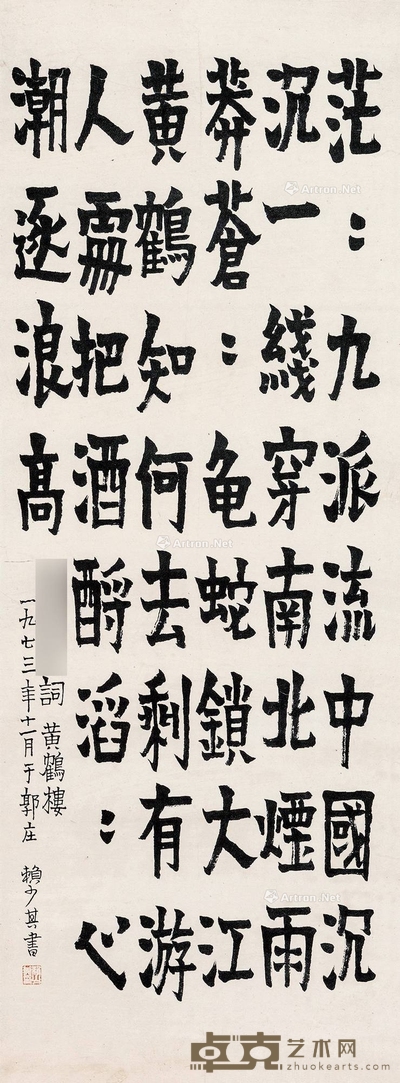 茫：九派流中國沉
沉一綫穿南北煙雨
莽蒼：龟蛇鎖大江
黄鶴知何去剩有游
人處把酒酹滔：心
潮逐浪高
詞 黄鶴樓
一九七三年十一月于郭庄 賴少其書
Artron.Net
Artron.Net
Artron.Net
Artron.Net
卓克艺术网
www.zhuokearts.com